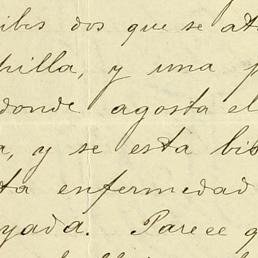 ibes dos que se at
hilla, y una p
donde agosta el
a, y se esta bis
ta enfermedad
yada. Parece q